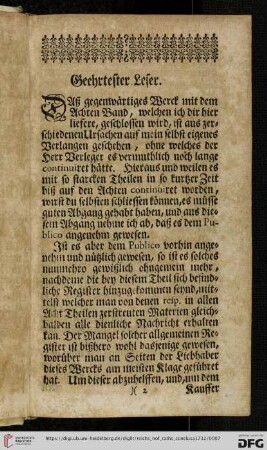 Geehrtester Leser.
Daß gegenwärtiges Werck mit dem
Achten Band, welchen ich dir hier
liefere, geschlossen wird, ist aus zer-
schiedenen Ursachen auf mein selbst eigenes
Verlangen geschehen, ohne welches der
Herr Verleger es vermuthlich noch lange
continuiret hätte. Hieraus und weilen es
mit so starcken Theilen in so kurtzer Zeit
biß auf den Achten continuiret worden,
wirst du selbsten schliessen können, es müsse
guten Abgang gehabt haben, und aus die-
sem Abgang nehme ich ab, daß es dem Pu-
blico angenehm gewesen.
Ist es aber dem Publico vorhin ange-
nehm und nützlich gewesen, so ist es solches
nunmehro gewißlich ohngemein mehr,
nachdeme die bey diesem Theil sich befind-
liche Register hinzug kommen seynd, mit-
telst welcher man von denen resp. in allen
Acht Theilen zerstreuten Materien gleich-
halben alle dienliche Nachricht erhalten
kan. Der Mangel solcher allgemeinen Re-
gister ist bißhero wohl dasjenige gewesen,
worüber man an Seiten der Liebhaber
dieses Wercks am meisten Klage geführet
hat. Um dieser abzuhelffen, und, um dem
)( 2 Kauffer
UNIVERSITÄTS-
BIBLIOTHEK
HEIDELBERG
Gefördert durch die
DFG